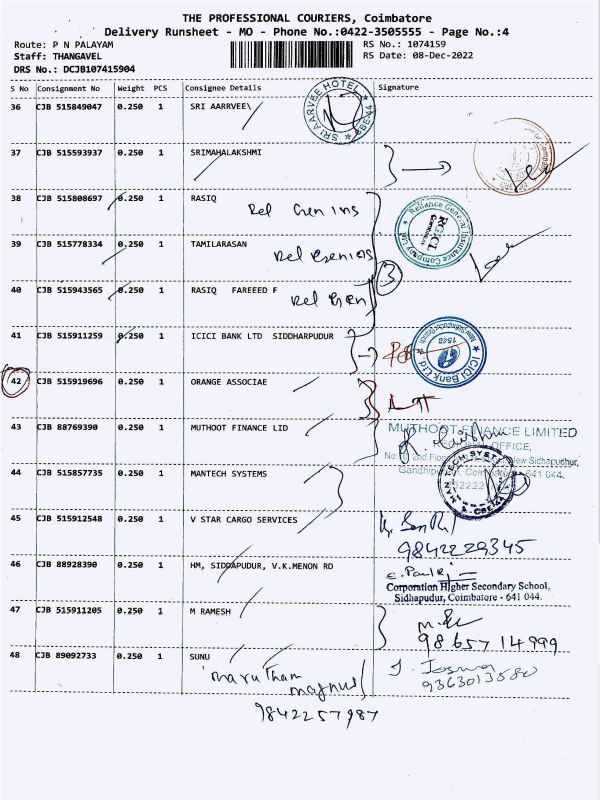 THE PROFESSIONAL COURIERS, Coimbatore
Delivery Runsheet - MO - Phone No.:0422-3505555 - Page No.:4
Route: P N PALAYAM RS No.: 1074159
Staff: THANGAVEL RS Date: 08-Dec-2022
DRS No.: DCJB107415904
S No Consignment No Weight PCS Consignee Details Signature
36 CJB 515849047 0.250 1 SRI AARRVEE\
SRI AARVEE HOTEL
CBE-44
37 CJB 515593937 0.250 1 SRIMAHALAKSHMI
38 CJB 515808697 0.250 1 RASIQ
Rel Genins
Reliance General Insurance Company Ltd
RGICL
39 CJB 515778334 0.250 1 TAMILARASAN
Rel Genins
3
40 CJB 515943565 0.250 1 RASIQ FAREEED F
Rel Gen
41 CJB 515911259 0.250 1 ICICI BANK LTD SIDDHARPUDUR
ICICI Bank Ltd.
New Siddhapudur Branch
1548
42 CJB 515919696 0.250 1 ORANGE ASSOCIAE
43 CJB 88769390 0.250 1 MUTHOOT FINANCE LID
MUTHOOT FINANCE LIMITED
OFFICE,
2nd Floor New Sidhapudhur,
Gandhipuram, Coimbatore - 641 044.
44 CJB 515857735 0.250 1 MANTECH SYSTEMS
45 CJB 515912548 0.250 1 V STAR CARGO SERVICES
9842229345
46 CJB 88928390 0.250 1 HM, SIDDAPUDUR, V.K.MENON RD
Corporation Higher Secondary School,
Sidhapudur, Coimbatore - 641 044.
47 CJB 515911205 0.250 1 M RAMESH
9865714999
48 CJB 89092733 0.250 1 SUNU
Marutham
magnus
9842257987
J. Josna
9363013580